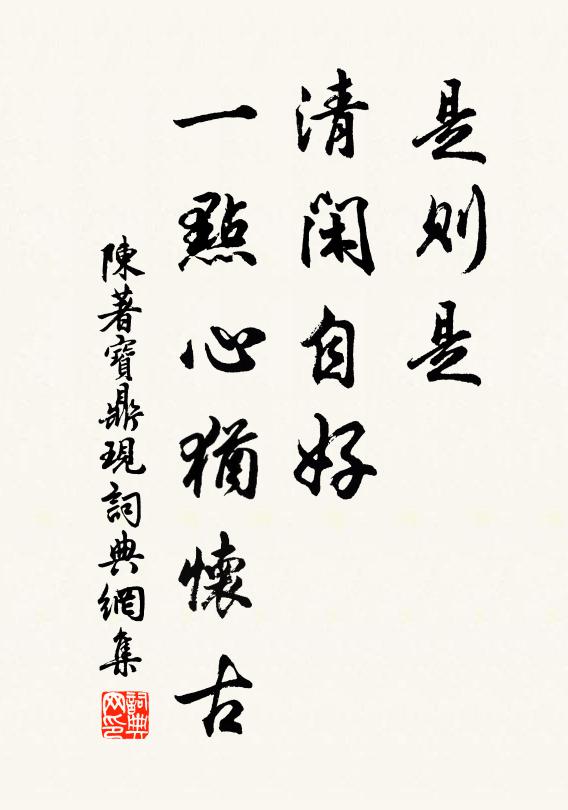 是则是
清閑自好
一點心猶懷古
陳著寶鼎現詞典網集
詞典网印